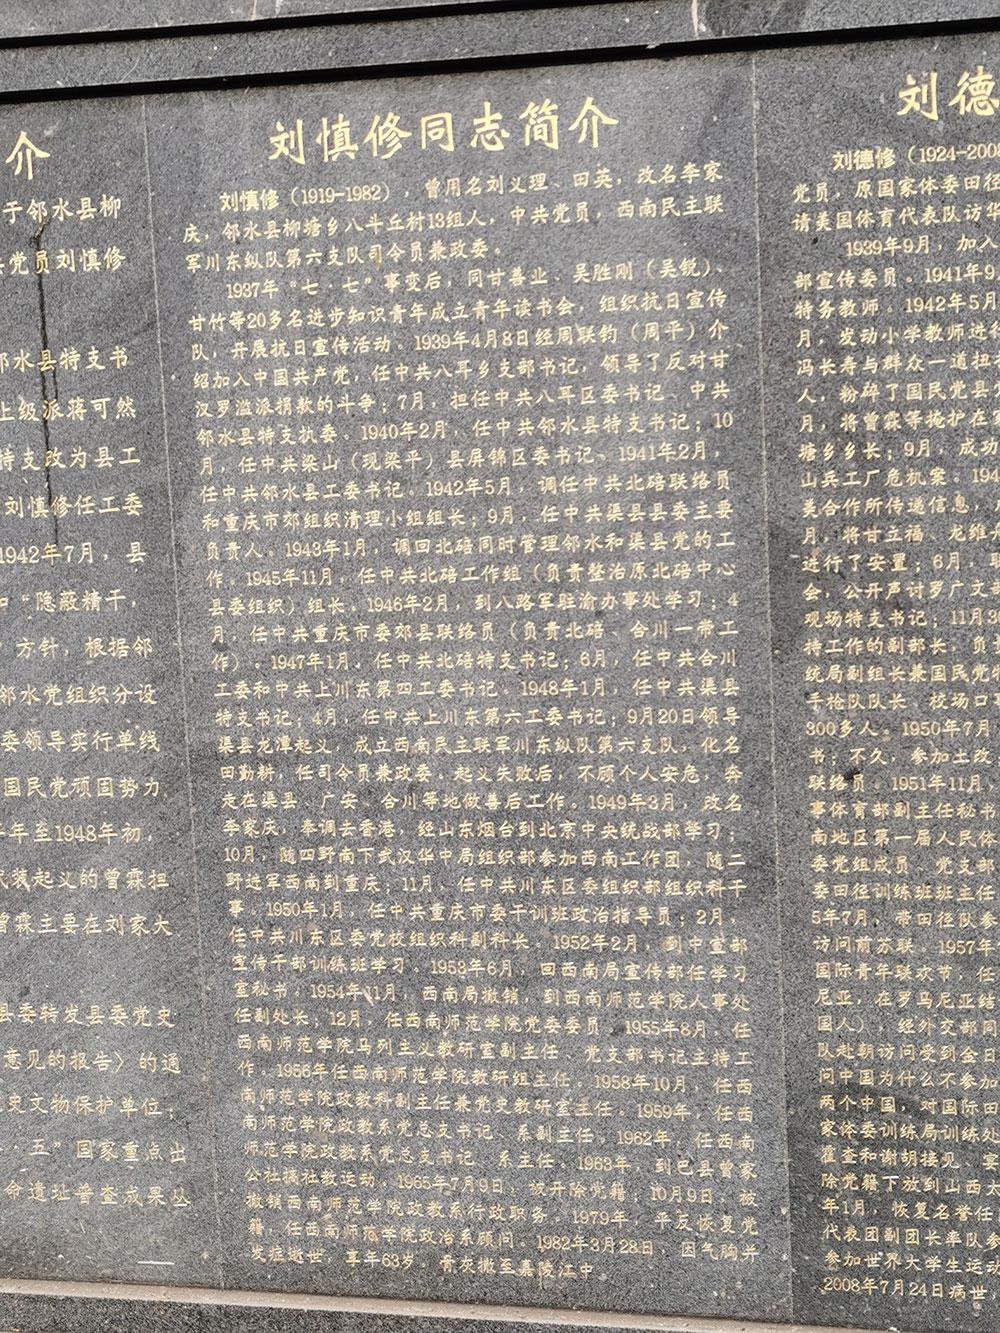 介
于邻水县柳
党员刘慎修
邻水县特支书
上级派蒋可然
特支改为县工
刘慎修任工委
1942年7月，县
和“隐蔽精干，
方针，根据邻
邻水党组织分设
委领导实行单线
国民党顽固势力
年至1948年初，
武装起义的曾霖担
曾霖主要在刘家大
县委转发县委党史
意见的报告〉的通
史文物保护单位；
·五”国家重点出
命遗址普查成果丛
刘慎修同志简介
刘慎修（1919-1982），曾用名刘义理、田英，改名李家
庆，邻水县柳塘乡八斗丘村13组人，中共党员，西南民主联
军川东纵队第六支队司令员兼政委。
1937年“七·七”事变后，同甘善业、吴胜刚（吴锐）、
甘竹等20多名进步知识青年成立青年读书会，组织抗日宣传
队，开展抗日宣传活动。1939年4月8日经周联钧（周平）介
绍加入中国共产党，任中共八耳乡支部书记，领导了反对甘
汉罗滥派捐款的斗争；7月，担任中共八耳区委书记、中共
邻水县特支执委。1940年2月，任中共邻水县特支书记；10
月，任中共梁山（现梁平）县屏锦区委书记、1941年2月，
任中共邻水县工委书记。1942年5月，调任中共北碚联络员
和重庆市郊组织清理小组组长；9月，任中共渠县县委主要
负责人。1943年1月，调回北碚同时管理邻水和渠县党的工
作。1945年11月，任中共北碚工作组（负责整治原北碚中心
县委组织）组长。1946年2月，到八路军驻渝办事处学习；4
月，任中共重庆市委郊县联络员（负责北碚、合川一带工
作）。1947年1月，任中共北碚特支书记；6月，任中共合川
工委和中共上川东第四工委书记。1948年1月，任中共渠县
特支书记；4月，任中共上川东第六工委书记；9月20日领导
渠县龙潭起义，成立西南民主联军川东纵队第六支队，化名
田勤耕，任司令员兼政委。起义失败后，不顾个人安危，奔
走在渠县、广安、合川等地做善后工作。1949年3月，改名
李家庆，奉调去香港，经山东烟台到北京中央统战部学习；
10月，随四野南下武汉华中局组织部参加西南工作团，随二
野进军西南到重庆；11月，任中共川东区委组织部组织科干
事。1950年1月，任中共重庆市委干训班政治指导员；2月，
任中共川东区委党校组织科副科长。1952年2月，到中宣部
宣传干部训练班学习。1953年6月，回西南局宣传部任学习
室秘书。1954年11月，西南局撤销，到西南师范学院人事处
任副处长；12月，任西南师范学院党委委员。1955年8月，任
西南师范学院马列主义教研室副主任、党支部书记主持工
作。1956年任西南师范学院教研组主任。1958年10月，任西
南师范学院政教科副主任兼党史教研室主任。1959年，任西
南师范学院政教系党总支书记、系副主任。1962年，任西南
师范学院政教系党总支书记、系主任。1963年，到巴县曾家
公社搞社教运动。1965年7月9日，被开除党籍；10月9日，被
撤销西南师范学院政教系行政职务。1979年，平反恢复党
籍，任西南师范学院政治系顾问。1982年3月28日，因气胸并
发症逝世，享年63岁。骨灰撒至嘉陵江中。
刘德
刘德修（1924-2008
党员，原国家体委田径
请美国体育代表队访华
1939年9月，加入
部宣传委员。1941年9
特务教师。1942年5月
月，发动小学教师进行
冯长寿与群众一道扭
人，粉碎了国民党县
月，将曾霖等掩护在
塘乡乡长；9月，成功
山兵工厂危机案。194
美合作所传递信息，
月，将甘立福、龙维
进行了安置；6月，
会，公开声讨罗广文
现场特支书记；11月3
持工作的副部长，负
统局副组长兼国民党
手枪队队长、校场口
300多人。1950年7月
书；不久，参加土改
联络员。1951年11月，
事体育部副主任秘书
南地区第一届人民体
委党组成员、党支部
委田径训练班班主任
5年7月，带田径队参
访问前苏联。1957年
国际青年联欢节，任
尼亚，在罗马尼亚结
国人），经外交部同
队赴朝访问受到金日
问中国为什么不参加
两个中国，对国际田
家体委训练局训练处
霍查和谢胡接见、宴
除党籍下放到山西太
年1月，恢复名誉任
代表团副团长率队参
参加世界大学生运动
2008年7月24日病世，